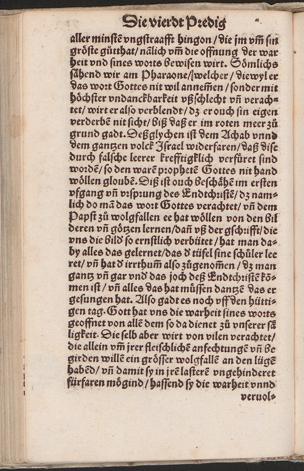 Die vierdt Predig
aller minstē vngstraafft hingon / die jm vm̄ sin
gröste gůtthat / nālich vm̄ die offnung der war
heit vnd sines worts bewisen wirt. Sömlichs
sāhend wir am Pharaone / welcher / diewyl er
das wort Gottes nit wil annem̄en / sonder mit
höchster vndanckbarkeit vßschlecht vn̄ verach=
tet / wirt er also verblendt / dz er ouch sin eigen
verderbē nit sicht / biß daß er im roten meer zů
grund gadt. Deßglychen ist dem Achab vnnd
dem gantzen volck Israel widerfaren / daß dise
durch falsche leerer krefftigklich verfürt sind
wordē / so den warē prophetē Gottes nit hand
wöllen gloubē. Diß ist ouch beschāhē im ersten
vfgang vn̄ vrsprung des Endtchristē / dz nam=
lich do mā das wort Gottes verachtet / vn̄ dem
Papst zů wolgfallen ee hat wöllen von den bil
deren vn̄ götzen lernen / dan̄ vß der gschrifft / die
vns die bild so ernstlich verbütet / hat man da=
by alles das gelernet / das d tüfel sine schüler lee
ret / vn̄ hat d irrthum̄ also zůgenom̄en / dz man
gantz vn̄ gar vnd das joch deß Endtchristē kō=
men ist / vn̄ alles das hat müssen dantzē das er
gesungen hat. Also gadt es noch vff den hütti=
gen tag. Gott hat vns die warheit sines worts
geoffnet von allē dem so da dienet zů vnserer sā
ligkeit. Die selb aber wirt von vilen verachtet /
die allein vm̄ jrer fleischlichē anfechtungē vn̄ be
girden willē ein grösser wolgfallē an den lügē
habēd / vn̄ damit sy in jrē lasterē vngehinderet
fürfaren mögind / hassend sy die warheit vnnd
veruol=